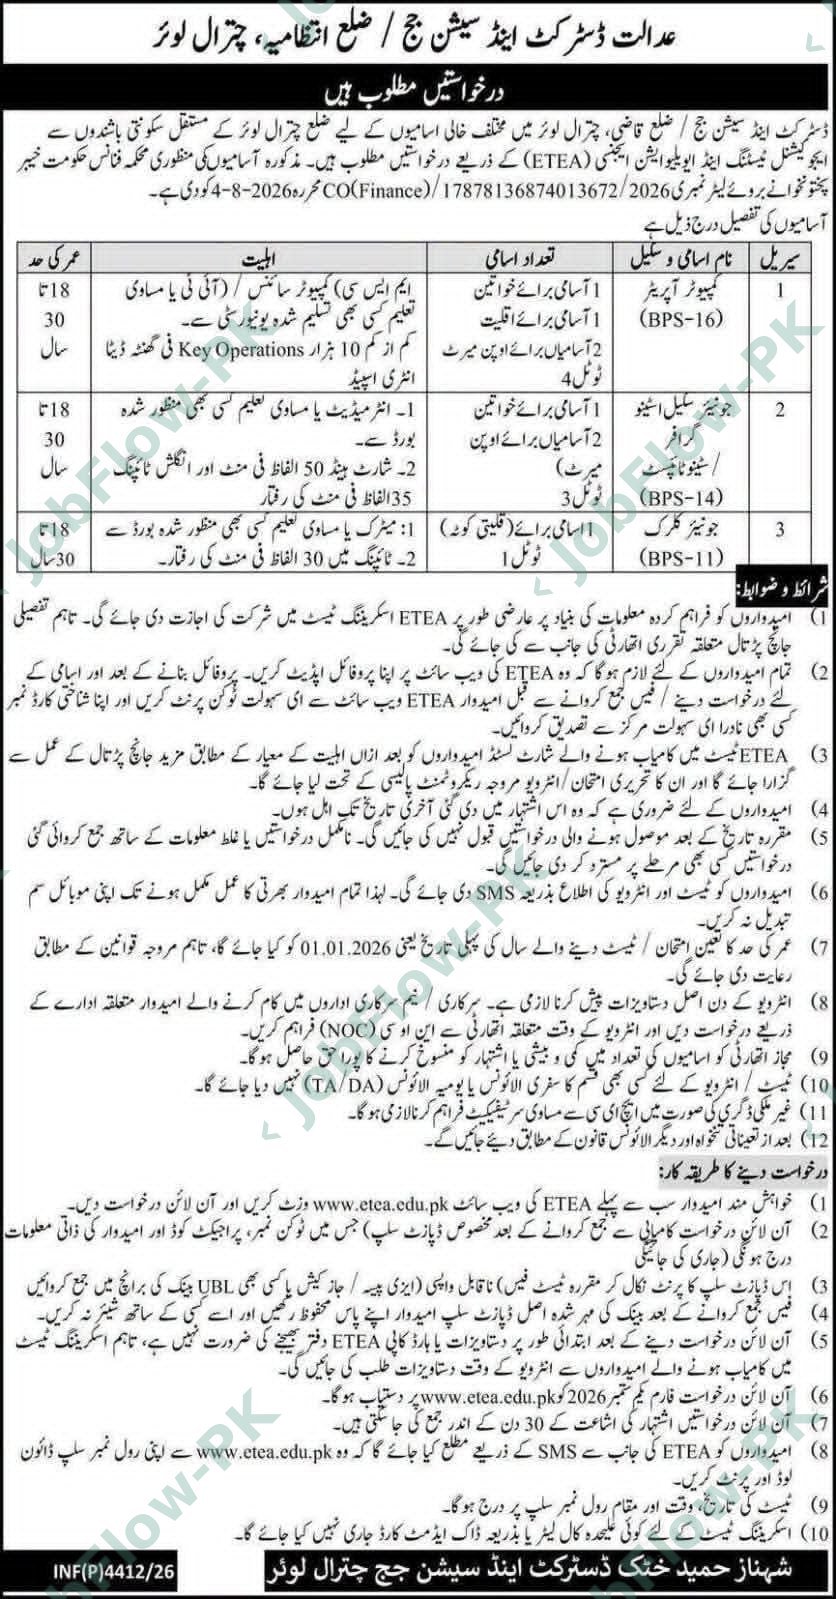 عدالت ڈسٹرکٹ اینڈ سیشن جج / ضلع انتظامیہ، چترال لوئر
درخواستیں مطلوب ہیں
ڈسٹرکٹ اینڈ سیشن جج / ضلع قاضی، چترال لوئر میں مختلف خالی اسامیوں کے لیے ضلع چترال لوئر کے مستقل سکونتی باشندوں سے
ایجوکیشنل ٹیسٹنگ اینڈ ایویلیوایشن ایجنسی (ETEA) کے ذریعے درخواستیں مطلوب ہیں۔ مذکورہ آسامیوں کی منظوری محکمہ فنانس حکومت خیبر
پختونخوا نے بروئے لیٹر نمبری CO(Finance)/17878136874013672/2026 محررہ 4-8-2026 کو دی ہے۔
آسامیوں کی تفصیل درج ذیل ہے
سیریل نام اسامی و سکیل تعداد اسامی اہلیت عمر کی حد
1 کمپیوٹر آپریٹر 1 آسامی برائے خواتین ایم ایس سی) کمپیوٹر سائنس / (آئی ٹی یا مساوی 18 تا
(BPS-16) 1 آسامی برائے اقلیت تعلیم کسی بھی تسلیم شدہ یونیورسٹی سے۔ 30
2 آسامیاں برائے اوپن میرٹ کم از کم 10 ہزار Key Operations فی گھنٹہ ڈیٹا سال
ٹوٹل 4 انٹری اسپیڈ
2 جونیئر سکیل اسٹینو 1 آسامی برائے خواتین 1۔ انٹر میڈیٹ یا مساوی تعلیم کسی بھی منظور شدہ 18 تا
گرافر 2 آسامیاں برائے اوپن بورڈ سے۔ 30
/ سٹینو ٹائپسٹ میرٹ) 2۔ شارٹ ہینڈ 50 الفاظ فی منٹ اور انگلش ٹائپنگ سال
(BPS-14) ٹوٹل 3 35 الفاظ فی منٹ کی رفتار
3 جونیئر کلرک 1 اسامی برائے (قلیتی کوٹہ) 1: میٹرک یا مساوی تعلیم کسی بھی منظور شدہ بورڈ سے 18 تا
(BPS-11) ٹوٹل 1 2۔ ٹائپنگ میں 30 الفاظ فی منٹ کی رفتار۔ 30 سال
شرائط و ضوابط:
1) امیدواروں کو فراہم کردہ معلومات کی بنیاد پر عارضی طور پر ETEA اسکریننگ ٹیسٹ میں شرکت کی اجازت دی جائے گی۔ تاہم تفصیلی
جانچ پڑتال متعلقہ تقرری اتھارٹی کی جانب سے کی جائے گی۔
2) تمام امیدواروں کے لئے لازم ہوگا کہ وہ ETEA کی ویب سائٹ پر اپنا پروفائل اپڈیٹ کریں۔ پروفائل بنانے کے بعد اور اسامی کے
لئے درخواست دینے / فیس جمع کروانے سے قبل امیدوار ETEA ویب سائٹ سے ای سہولت ٹوکن پرنٹ کریں اور اپنا شناختی کارڈ نمبر
کسی بھی نادرا ای سہولت مرکز سے تصدیق کروائیں۔
3) ETEA ٹیسٹ میں کامیاب ہونے والے شارٹ لسٹڈ امیدواروں کو بعد ازاں اہلیت کے معیار کے مطابق مزید جانچ پڑتال کے عمل سے
گزارا جائے گا اور ان کا تحریری امتحان/انٹرویو مروجہ ریکروٹمنٹ پالیسی کے تحت لیا جائے گا۔
4) امیدواروں کے لئے ضروری ہے کہ وہ اس اشتہار میں دی گئی آخری تاریخ تک اہل ہوں۔
5) مقررہ تاریخ کے بعد موصول ہونے والی درخواستیں قبول نہیں کی جائیں گی۔ نامکمل درخواستیں یا غلط معلومات کے ساتھ جمع کروائی گئی
درخواستیں کسی بھی مرحلے پر مسترد کر دی جائیں گی۔
6) امیدواروں کو ٹیسٹ اور انٹرویو کی اطلاع بذریعہ SMS دی جائے گی۔ لہذا تمام امیدوار بھرتی کا عمل مکمل ہونے تک اپنی موبائل سم
تبدیل نہ کریں۔
7) عمر کی حد کا تعین امتحان / ٹیسٹ دینے والے سال کی پہلی تاریخ یعنی 01.01.2026 کو کیا جائے گا، تاہم مروجہ قوانین کے مطابق
رعایت دی جائے گی۔
8) انٹرویو کے دن اصل دستاویزات پیش کرنا لازمی ہے۔ سرکاری / نیم سرکاری اداروں میں کام کرنے والے امیدوار متعلقہ ادارے کے
ذریعے درخواست دیں اور انٹرویو کے وقت متعلقہ اتھارٹی سے این او سی (NOC) فراہم کریں۔
9) مجاز اتھارٹی کو اسامیوں کی تعداد میں کمی و بیشی یا اشتہار کو منسوخ کرنے کا پورا حق حاصل ہوگا۔
10) ٹیسٹ / انٹرویو کے لئے کسی بھی قسم کا سفری الاؤنس یا یومیہ الاؤنس (TA/DA) نہیں دیا جائے گا۔
11) غیر ملکی ڈگری کی صورت میں ایچ ای سی سے مساوی سرٹیفکیٹ فراہم کرنا لازمی ہوگا۔
12) بعد از تعیناتی تنخواہ اور دیگر الاؤنس قانون کے مطابق دیئے جائیں گے۔
درخواست دینے کا طریقہ کار:
1) خواہش مند امیدوار سب سے پہلے ETEA کی ویب سائٹ www.etea.edu.pk وزٹ کریں اور آن لائن درخواست دیں۔
2) آن لائن درخواست کامیابی سے جمع کروانے کے بعد مخصوص ڈپازٹ سلپ) جس میں ٹوکن نمبر، پراجیکٹ کوڈ اور امیدوار کی ذاتی معلومات
درج ہونگی (جاری کی جائیگی
3) اس ڈپازٹ سلپ کا پرنٹ نکال کر مقررہ ٹیسٹ فیس) ناقابل واپسی (ایزی پیسہ / جاز کیش یا کسی بھی UBL بینک کی برانچ میں جمع کروائیں
4) فیس جمع کروانے کے بعد بینک کی مہر شدہ اصل ڈپازٹ سلپ امیدوار اپنے پاس محفوظ رکھیں اور اسے کسی کے ساتھ شیئر نہ کریں۔
5) آن لائن درخواست دینے کے بعد ابتدائی طور پر دستاویزات یا ہارڈ کاپی ETEA دفتر بھیجنے کی ضرورت نہیں ہے، تاہم اسکریننگ ٹیسٹ
میں کامیاب ہونے والے امیدواروں سے انٹرویو کے وقت دستاویزات طلب کی جائیں گی۔
6) آن لائن درخواست فارم یکم ستمبر 2026 کو www.etea.edu.pk پر دستیاب ہوگا۔
7) آن لائن درخواستیں اشتہار کی اشاعت کے 30 دن کے اندر جمع کی جا سکتی ہیں۔
8) امیدواروں کو ETEA کی جانب سے SMS کے ذریعے مطلع کیا جائے گا کہ وہ www.etea.edu.pk سے اپنی رول نمبر سلپ ڈاؤن
لوڈ اور پرنٹ کریں۔
9) ٹیسٹ کی تاریخ، وقت اور مقام رول نمبر سلپ پر درج ہوگا۔
10) اسکریننگ ٹیسٹ کے لئے کوئی علیحدہ کال لیٹر یا بذریعہ ڈاک ایڈمٹ کارڈ جاری نہیں کیا جائے گا۔
شہناز حمید خٹک ڈسٹرکٹ اینڈ سیشن جج چترال لوئر
INF(P)4412/26
JobFlow-PK